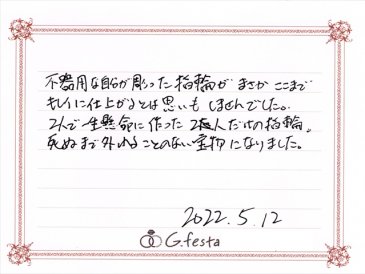 不器用な自分が彫った指輪がまさかここまで
キレイに仕上がるとは思いもしませんでした。
2人で一生懸命に作った2人だけの指輪。
死ぬまで外れることのない宝物になりました。
2022.5.12
G.festa